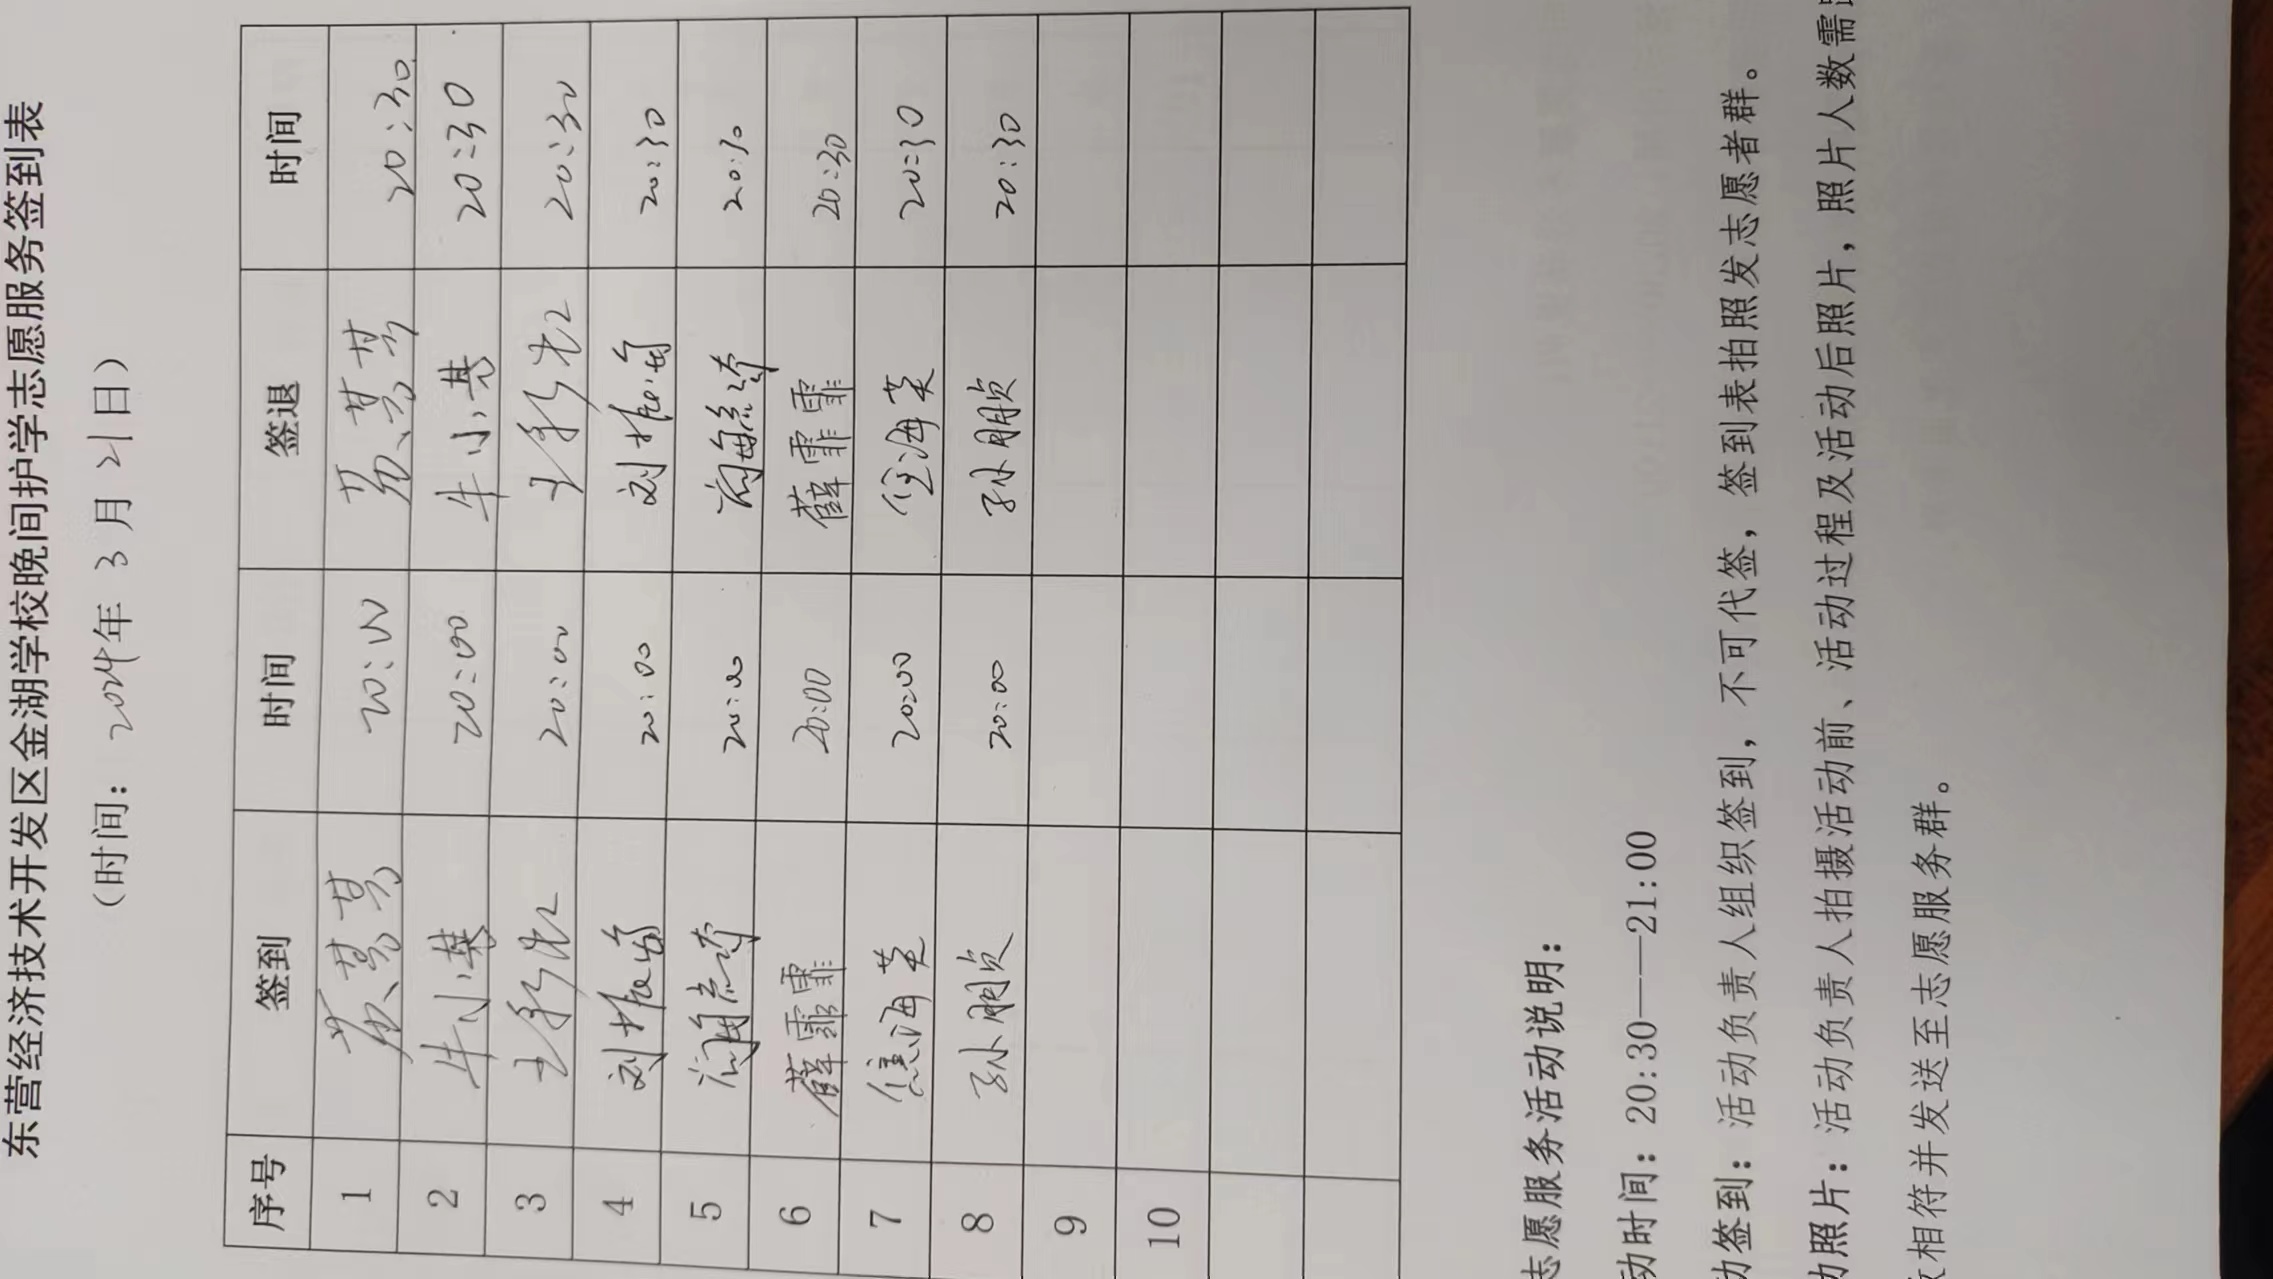 东营经济技术开发区金湖学校晚间护学志愿服务签到表
（时间：2024年 3 月 21日）
序号 签到 时间 签退 时间
1 20:00 20:30
2 牛小 20:00 牛小 20:30
3 20:00 20:30
4 刘 20:00 刘 20:30
5 20:00 20:30
6 薛霏霏 20:00 薛霏霏 20:30
7 焦海英 20:00 焦海英 20:30
8 孙朋 20:00 孙朋 20:30
9
10
志愿服务活动说明：
动时间：20:30——21:00
动签到：活动负责人组织签到，不可代签，签到表拍照发志愿者群。
动照片：活动负责人拍摄活动前、活动过程及活动后照片，照片人数需
相符并发送至志愿服务群。